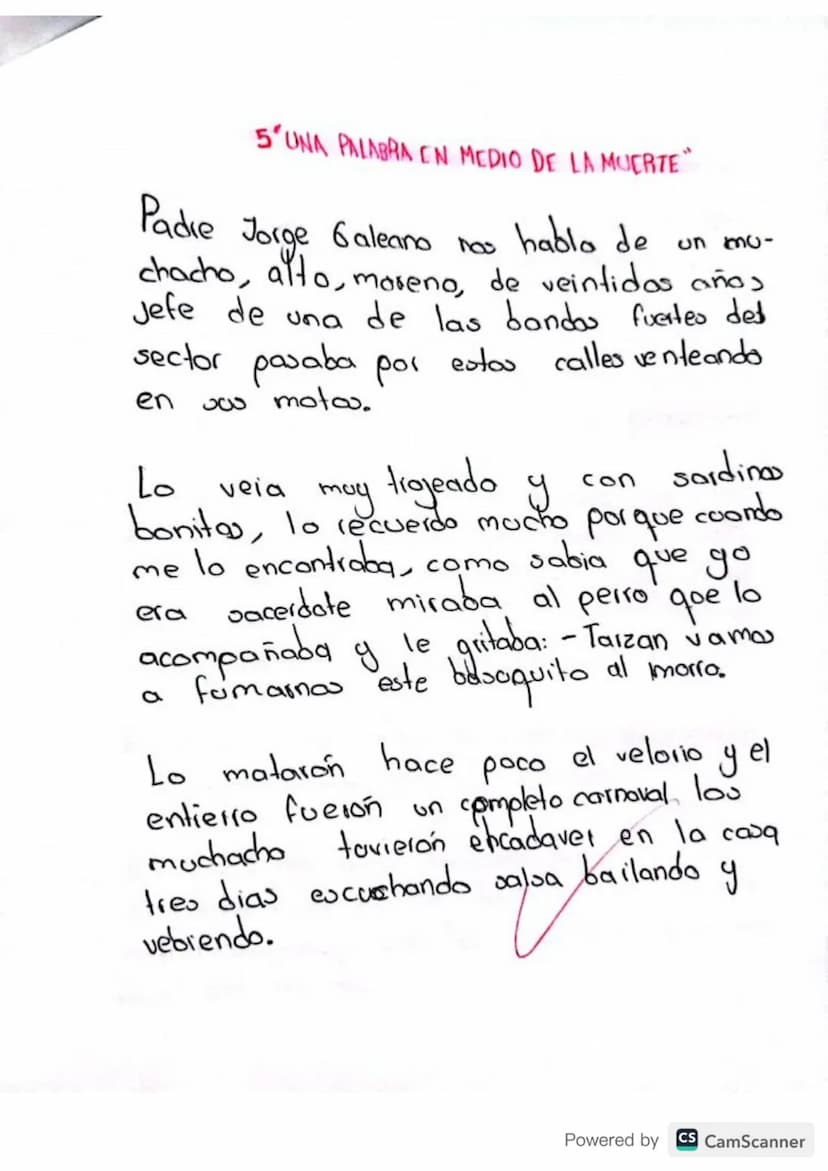 5"UNA PALABRA EN MEDIO DE LA MUERTE"
Padre Jorge Galeano nos habla de un mu-
chacho, alto, moreno, de veintidos años
Jefe de una de las bandas fuertes del
sector pasaba por estas calles venteando
en sus motos.
Lo veia muy trajeado y con sardinas
bonitas, lo recuerdo mucho porque cuando
me lo encontraba, como sabia que yo
era sacerdote miraba al perro que lo
acompañaba y le gritaba: - Tarzan vamos
a fumarnos este basuquito al morro.
Lo matarón hace poco el velorio y el
entierro fuerón un completo carnaval, los
muchacho tuvierón elcadaver en la casa
tres dias escuchando salsa bailando y
vebiendo.
Powered by CS CamScanner